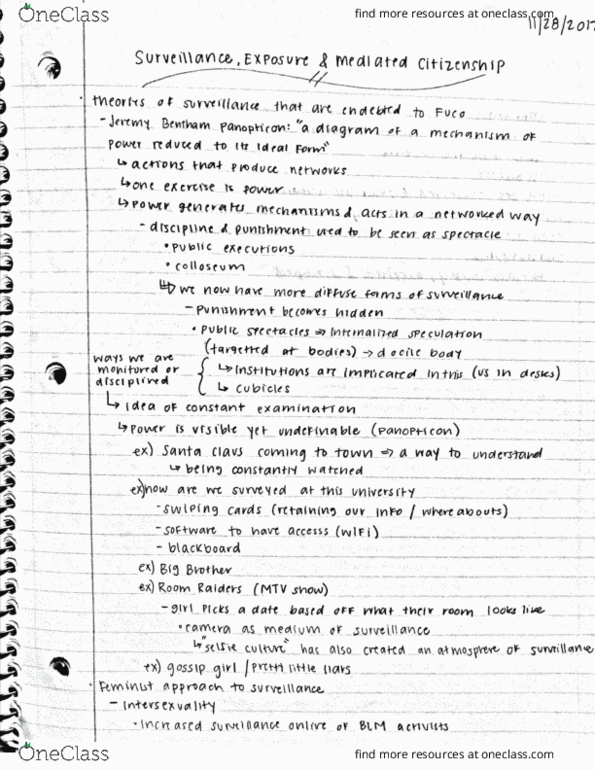 OneClass
find more resources at oneclass.com
11/28/2017
Surveillance, Exposure & Mediated Citizenship
• theories of surveillance that are endebted to Fuco
- Jeremy Bentham Panopticon: "a diagram of a mechanism of
power reduced to its ideal form"
↳ actions that produce networks
↳ one exercise is power
↳ power generates mechanisms & acts in a networked way
- discipline & punishment used to be seen as spectacle
• public executions
• colloseum
↳ we now have more diffuse forms of surveillance
- punishment becomes hidden
• public spectacles ⇒ internalized speculation
(targetted at bodies) → docile body
ways we are
monitored or
disciplined
↳ institutions are implicated in this (us in desks)
↳ cubicles
↳ idea of constant examination
↳ power is visible yet undefinable (panopticon)
ex) Santa claus coming to town ⇒ a way to understand
↳ being constantly watched
ex) how are we surveyed at this university
- swiping cards (retaining our info / whereabouts)
- software to have accesss (wifi)
- blackboard
ex) Big Brother
ex) Room Raiders (MTV show)
- girl picks a date based off what their room looks like
• camera as medium of surveillance
↳ "selfie culture" has also created an atmosphere of surveillance
ex) gossip girl / pretty little liars
• Feminist approach to surveillance
- Intersexuality
• increased surveillance online of BLM activists
OneClass
find more resources at oneclass.com